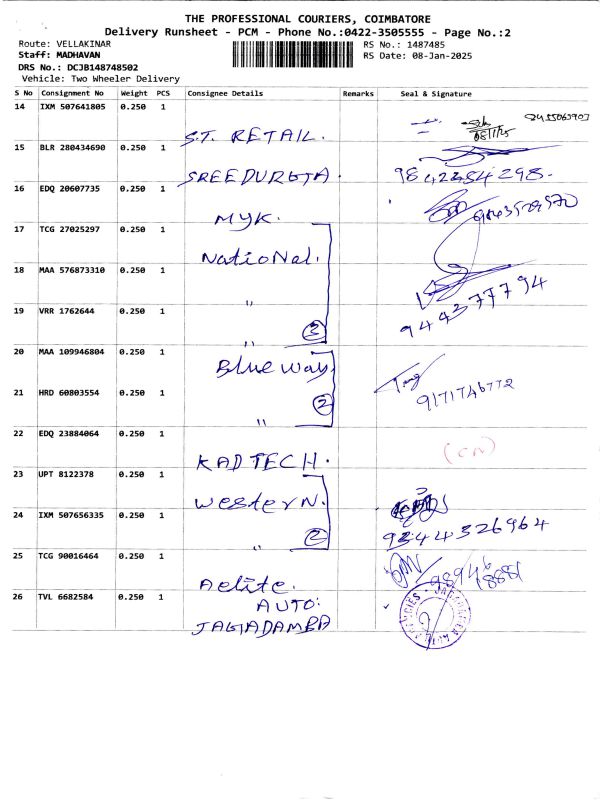 THE PROFESSIONAL COURIERS, COIMBATORE
Delivery Runsheet - PCM - Phone No.:0422-3505555 - Page No.:2
Route: VELLAKINAR
RS No.: 1487485
Staff: MADHAVAN
RS Date: 08-Jan-2025
DRS No.: DCJB148748502
Vehicle: Two Wheeler Delivery
S No Consignment No Weight PCS Consignee Details Remarks Seal & Signature
14 IXM 507641805 0.250 1
S.T. RETAIL.
08/1/25
15 BLR 280434690 0.250 1
SREEDURGA. 9842384298.
16 EDQ 20607735 0.250 1
MYK.
17 TCG 27025297 0.250 1
National.
18 MAA 576873310 0.250 1
" 944377794
19 VRR 1762644 0.250 1
" 3
20 MAA 109946804 0.250 1
Blue way
21 HRD 60803554 0.250 1
" 2 9171746772
22 EDQ 23884064 0.250 1
KADTECH. (CN)
23 UPT 8122378 0.250 1
Western.
24 IXM 507656335 0.250 1
" 2 9244326964
25 TCG 90016464 0.250 1
Aelite. 98946 18881
26 TVL 6682584 0.250 1
AUTO:
JAGADAMBA